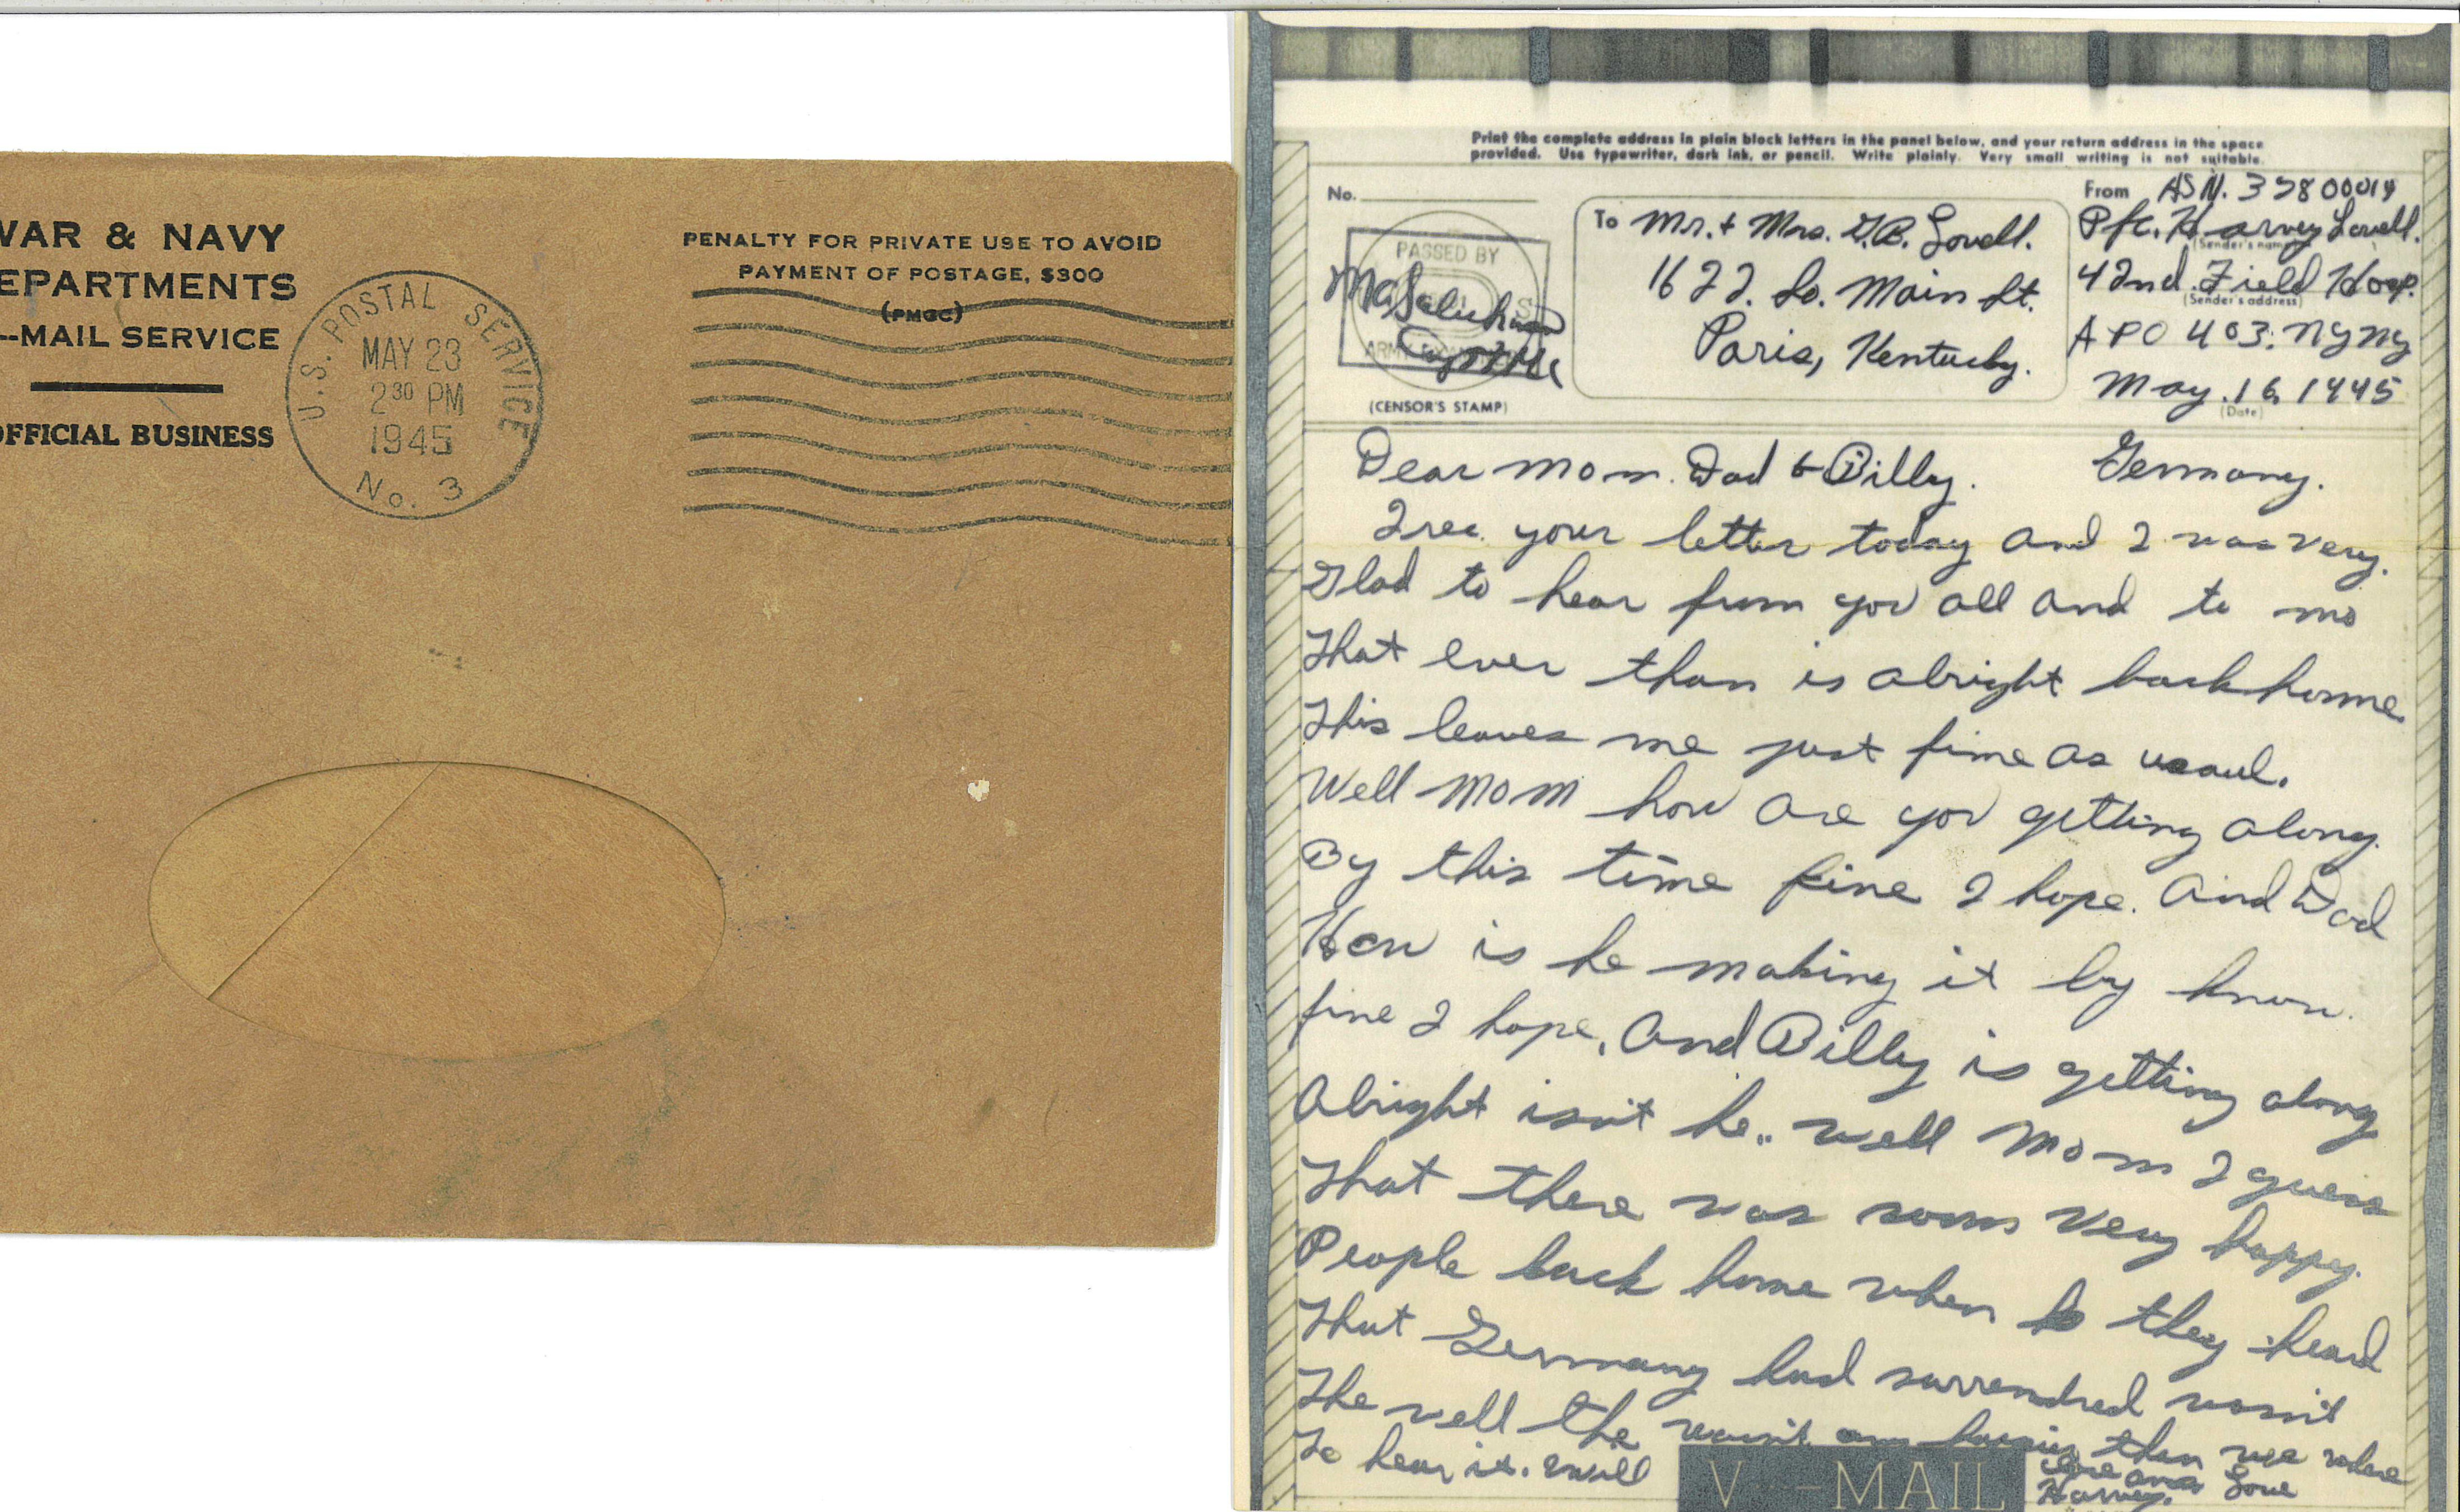 WAR & NAVY
DEPARTMENTS
-MAIL SERVICE
OFFICIAL BUSINESS
U.S. POSTAL SERVICE
MAY 23
2 30 PM
1945
No. 3
PENALTY FOR PRIVATE USE TO AVOID
PAYMENT OF POSTAGE, $300
(PMGC)
Print the complete address in plain block letters in the panel below, and your return address in the space
provided. Use typewriter, dark ink, or pencil. Write plainly. Very small writing is not suitable.
No.
PASSED BY
ARMY
(CENSOR'S STAMP)
To Mr. + Mrs. G.B. Lovell.
1622. So. Main St.
Paris, Kentucky.
From ASN. 35800014
Pfc. Harvey Lovell.
(Sender's name)
42nd. Field Hosp.
(Sender's address)
APO 403. NYNY
May. 16, 1945
(Date)
Dear Mom. Dad & Billy. Germany.
I rec. your letter today and I was very.
Glad to hear from you all and to
That ever than is alright back home
This leaves me just fine as usaul.
Well Mom how are you getting along.
By this time fine I hope. And Dad
How is he making it by know.
fine I hope. And Billy is getting along
Alright isn't he.. well Mom I guess
That there was some very happy.
People back home when they heard
That Germany had surrendred wasn't
The well the wasn't any happier then we where
To hear it. Well
V - MAIL
Love
Harvey.